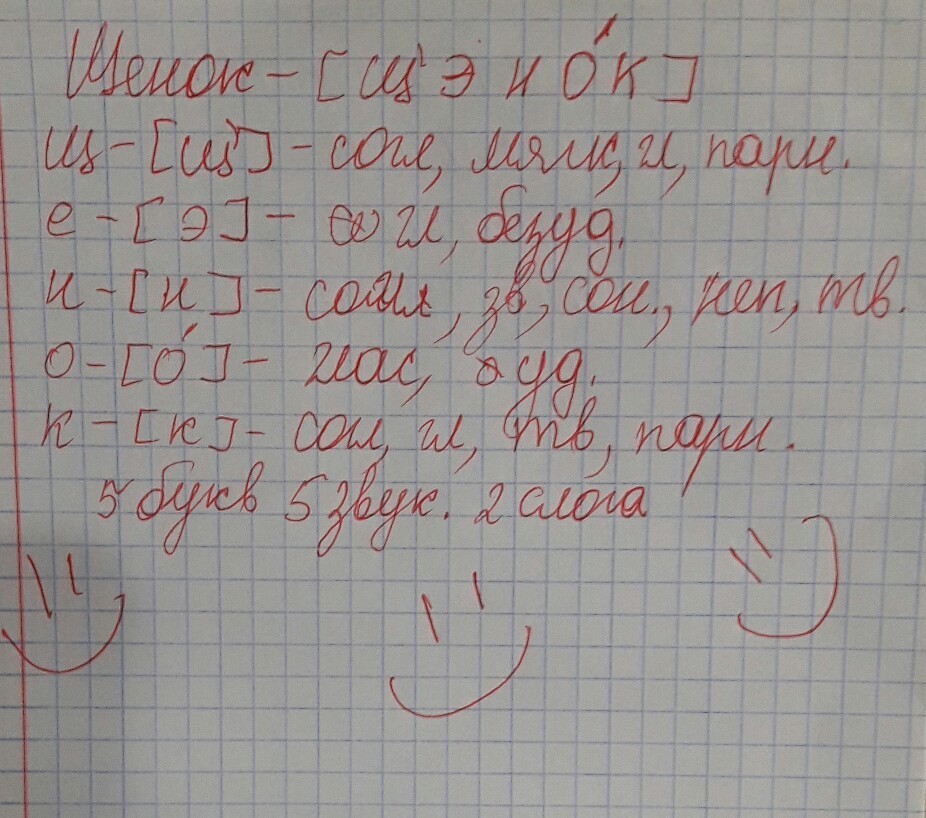 Щенок – [щ' э н о́ к]
щ – [щ'] – согл, мягк, гл, парн.
е – [э] – гл, безуд.
н – [н] – согл, зв, сон., неп, тв.
о – [о́] – глас, уд.
к – [к] – согл, гл, тв, парн.
5 букв 5 звук. 2 слога